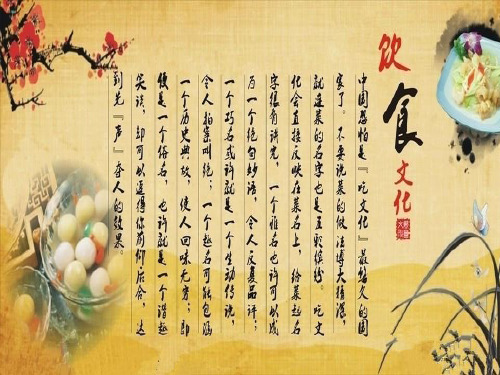 饮食文化
中国恐怕是『吃文化』最悠久的国
家了。不要说菜的做法博大精深,
就连菜的名字也是五彩缤纷。吃文
化会直接反映在菜名上,给菜起名
字很有讲究,一个雅名也许可以成
为一个绝句妙语,令人反复品评;
一个巧名或许就是一个生动传说,
令人拍案叫绝;一个趣名可能包涵
一个历史典故,使人回味无穷;即
便是一个俗名,也许就是一个谐趣
笑谈,却可以逗得你前仰后合,达
到先『声』夺人的效果。